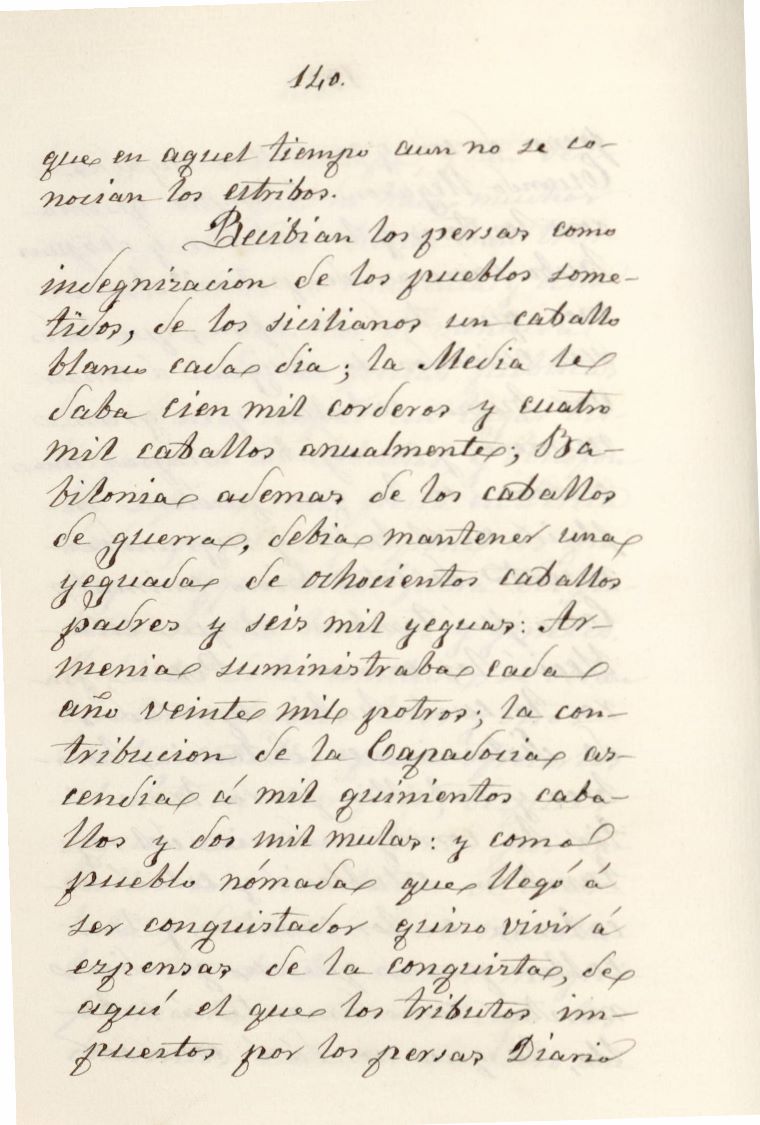 140.
que en aquel tiempo aun no se co-
nocian los estribos.
Recibian los persas como
indegnizacion de los pueblos some-
tidos, de los sicilianos un caballo
blanco cada dia; la Media le
daba cien mil corderos y cuatro
mil caballos anualmente; Ba-
bilonia ademas de los caballos
de guerra, debia mantener una
yeguada de ochocientos caballos
padres y seis mil yeguas: Ar-
menia suministraba cada
año veinte mil potros; la con-
tribucion de la Capadocia as-
cendia á mil quinientos caba-
llos y dos mil mulas: y como
pueblo nómada que llegó á
ser conquistador quizo vivir á
expensas de la conquista, de
aquí el que los tributos im-
puestos por los persas Diario